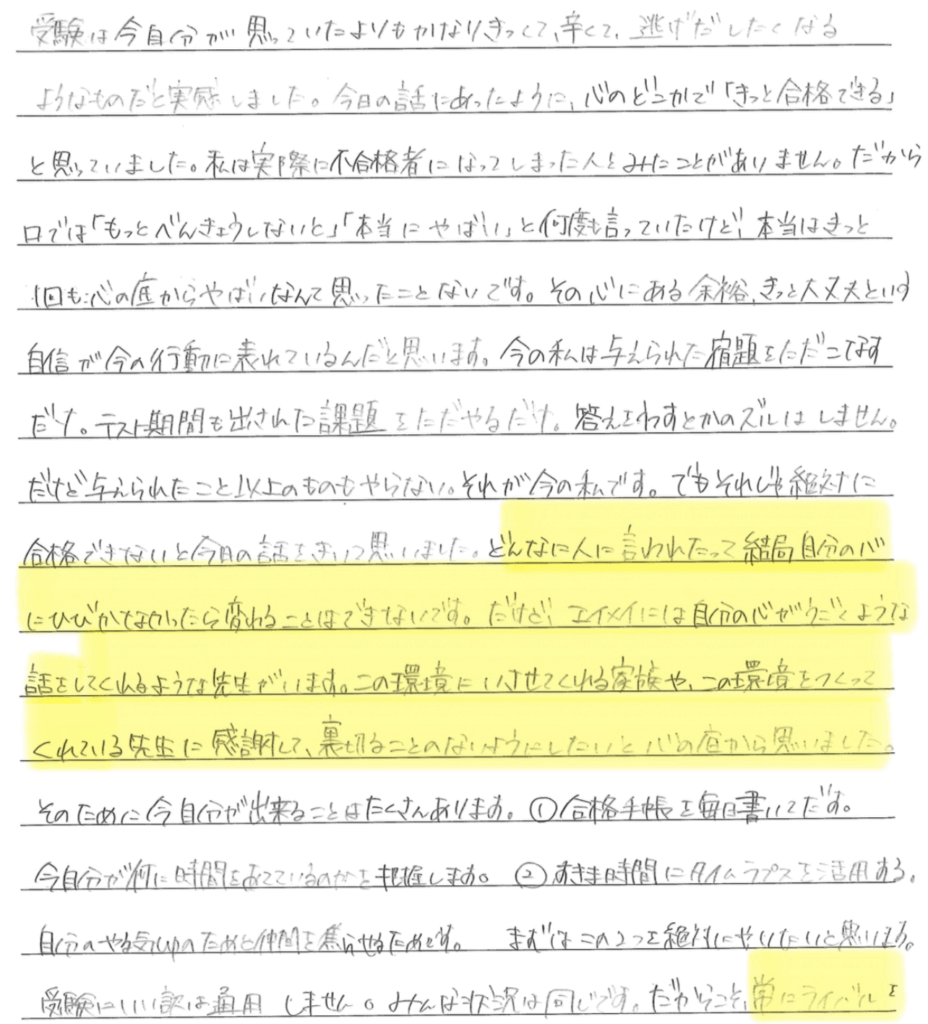 受験は今自分が思っていたよりもかなりきつくて、辛くて、逃げだしたくなる
ようなものだと実感しました。今日の話にあったように、心のどこかで「きっと合格できる」
と思っていました。私は実際に不合格者になってしまった人をみたことがありません。だから
口では「もっとべんきょうしないと」「本当にやばい」と何度も言っていたけど、本当はきっと
1回も心の底からやばいなんて思ったことないです。その心にある余裕、きっと大丈夫という
自信が今の行動に表れているんだと思います。今の私は与えられた宿題をただこなす
だけ。テスト期間も出された課題をただやるだけ。答えをわすとかのズルはしません。
だけど与えられたこと以上のものもやらない。それが今の私です。でもそれじゃ絶対に
合格できないと今日の話をきいて思いました。どんなに人に言われたって結局自分の心
にひびかなかったら変わることはできないです。だけど、エイメイには自分の心がうごくような
話をしてくれるような先生がいます。この環境にいさせてくれる家族や、この環境をつくって
くれている先生に感謝して、裏切ることのないようにしたいと心の底から思いました。
そのために今自分が出来ることはたくさんあります。①合格手帳を毎日書いてだす。
今自分が何に時間をあてているのかを把握します。②すきま時間にタイムラプスを活用する。
自分のやる気upのためと仲間を焦らせるためです。 まずはこの2つを絶対にやりたいと思います。
受験にいい訳は通用しません。みんな状況は同じです。だからこそ、常にライバルを